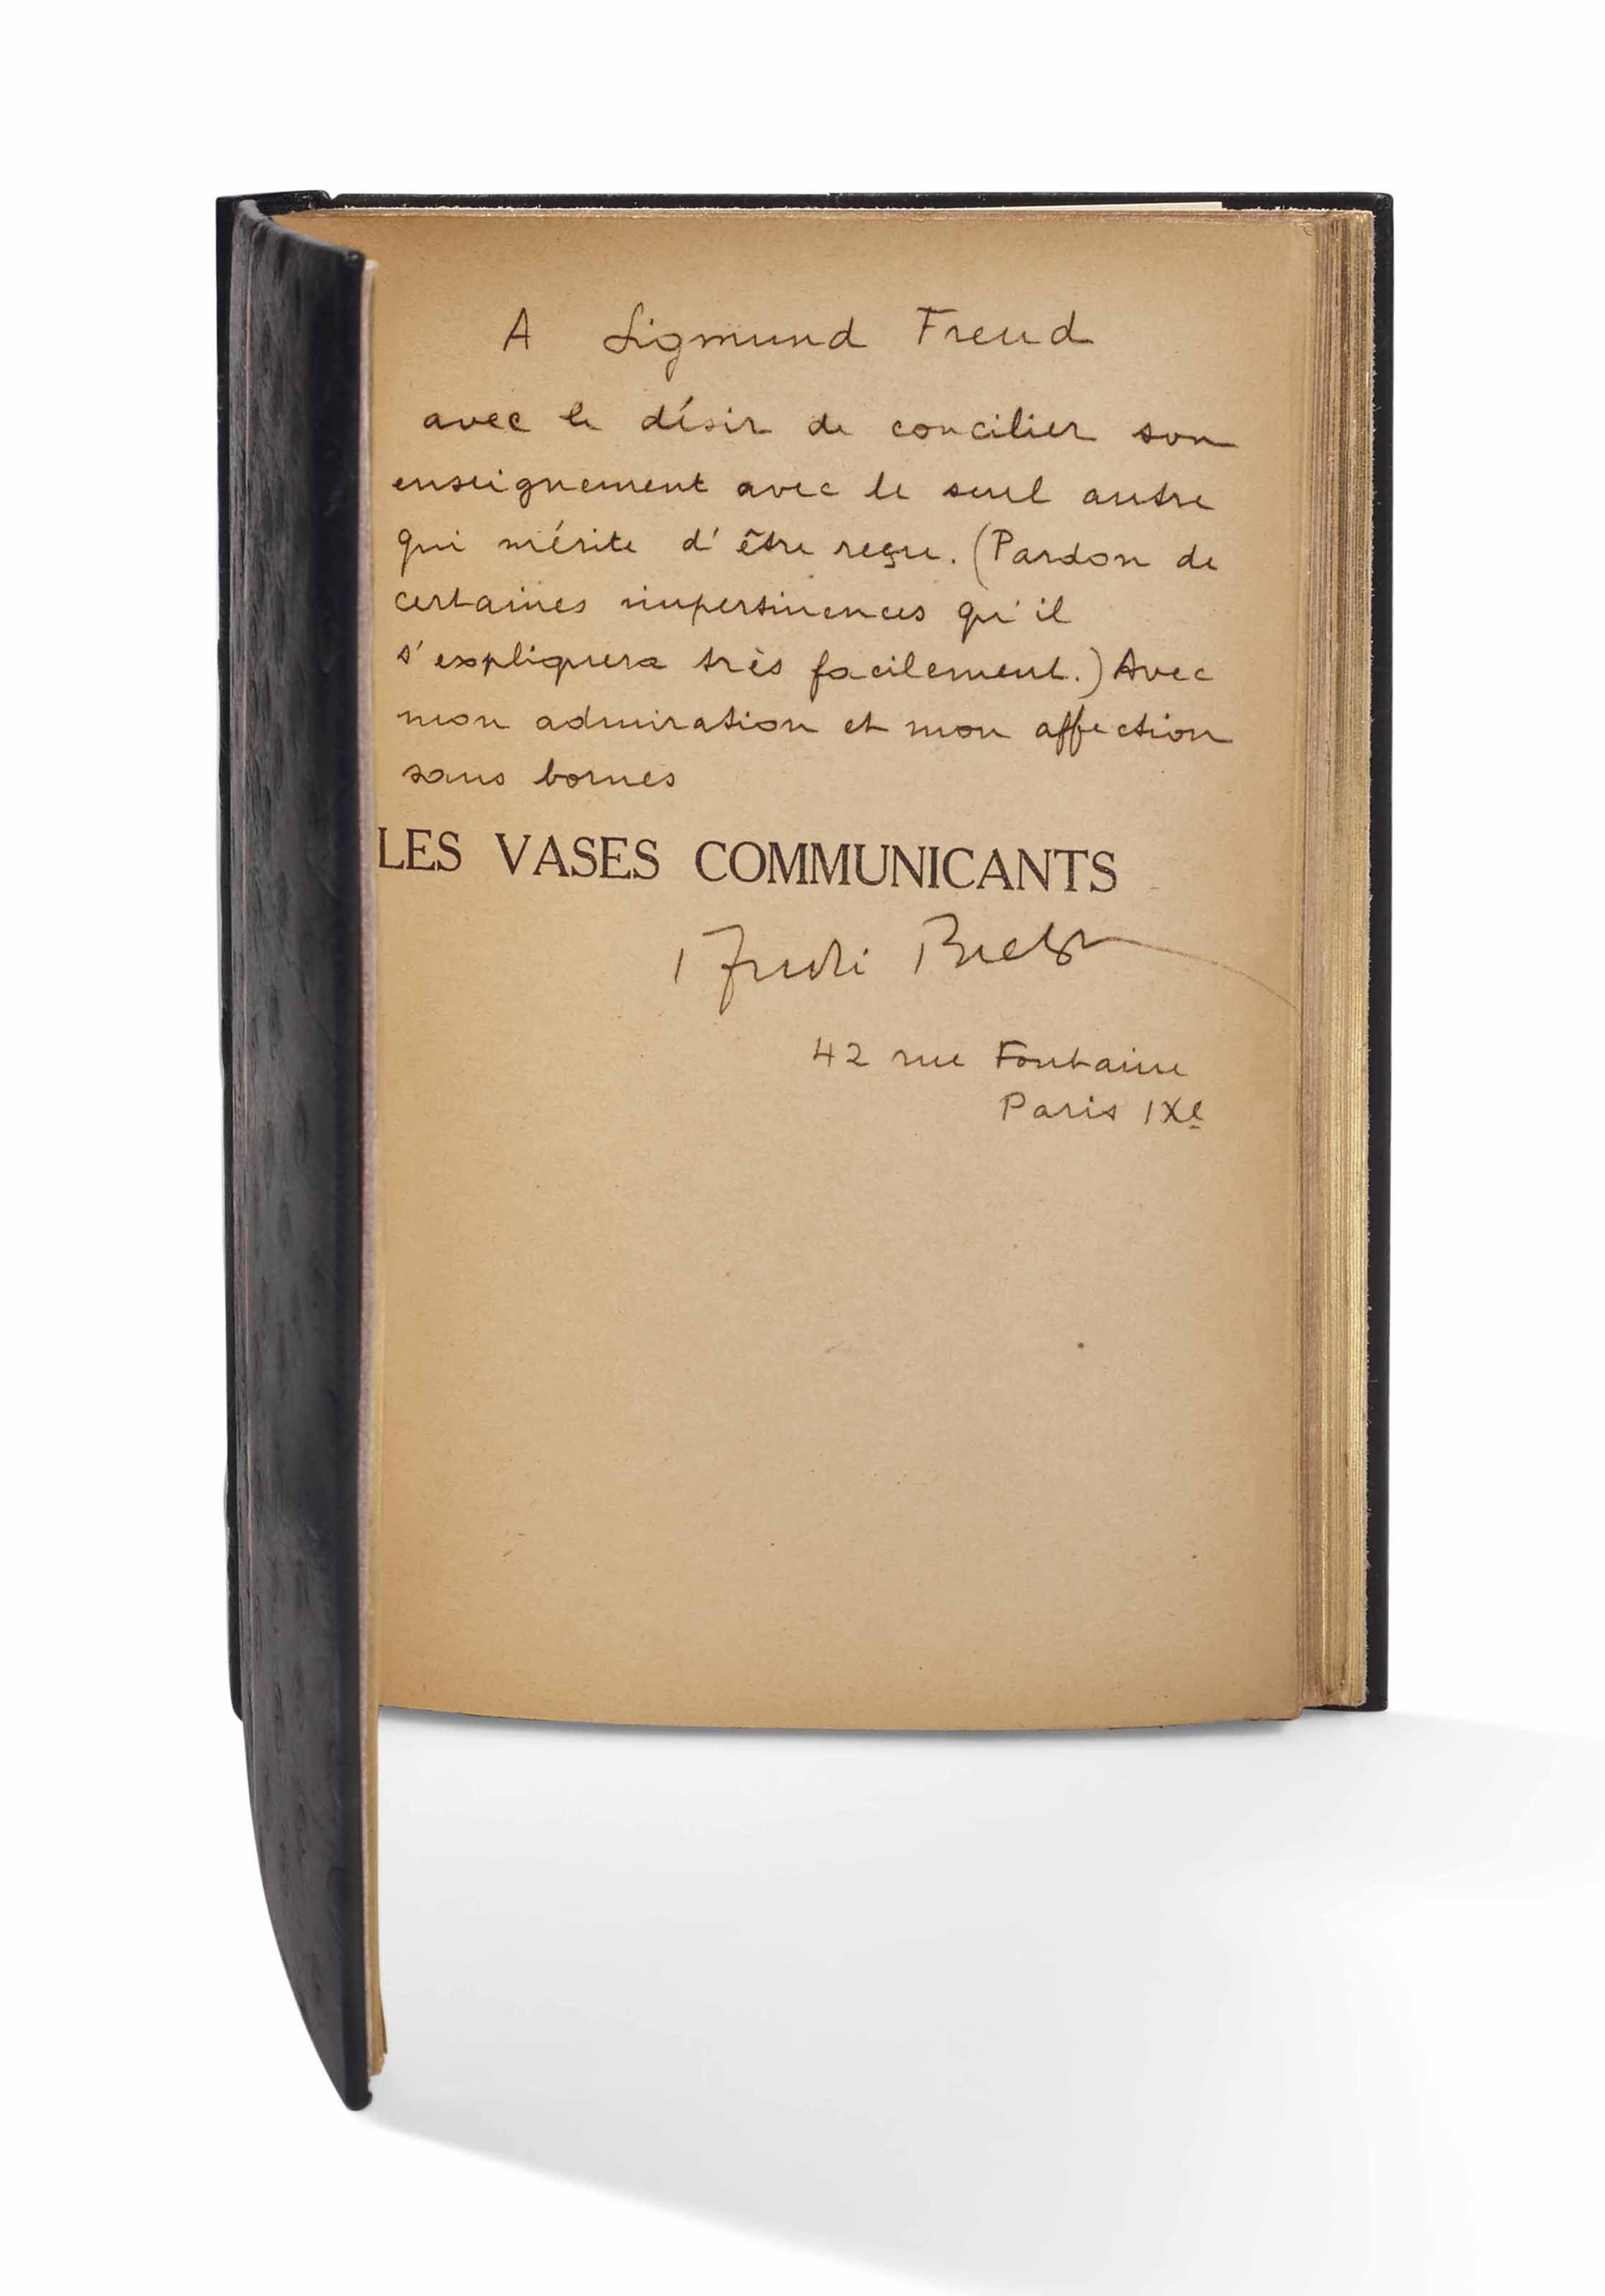 A Sigmund Freud
avec le désir de concilier son
enseignement avec le seul autre
qui mérite d'être reçu. (Pardon de
certaines impertinences qu'il
s'expliquera très facilement.) Avec
mon admiration et mon affection
sans bornes
LES VASES COMMUNICANTS
André Breton
42 rue Fontaine
Paris IXe